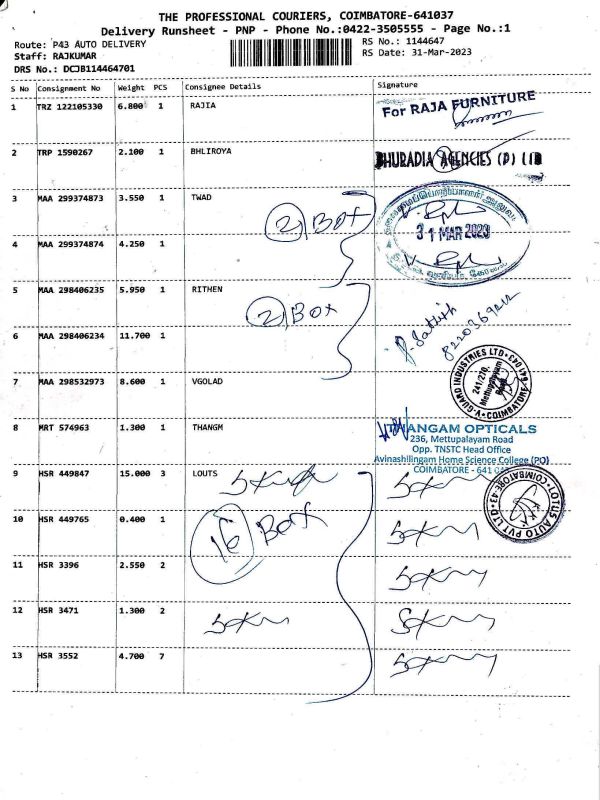 THE PROFESSIONAL COURIERS, COIMBATORE-641037
Delivery Runsheet - PNP - Phone No.:0422-3505555 - Page No.:1
Route: P43 AUTO DELIVERY
RS No.: 1144647
Staff: RAJKUMAR
RS Date: 31-Mar-2023
DRS No.: DCJB114464701
S No Consignment No Weight PCS Consignee Details Signature
1 TRZ 122105330 6.800 1 RAJIA
For RAJA FURNITURE
2 TRP 1590267 2.100 1 BHLIROYA
BHURADIA AGENCIES (P) LTD
3 MAA 299374873 3.550 1 TWAD
2 Box
31 MAR 2023
4 MAA 299374874 4.250 1
5 MAA 298406235 5.950 1 RITHEN
2 Box
6 MAA 298406234 11.700 1
7 MAA 298532973 8.600 1 VGOLAD
V-GUARD INDUSTRIES LTD
241/270,
Mettupalayam
Road
COIMBATORE
8 MRT 574963 1.300 1 THANGM
THANGAM OPTICALS
236, Mettupalayam Road
Opp. TNSTC Head Office
Avinashilingam Home Science College (PO)
COIMBATORE - 641 043
9 HSR 449847 15.000 3 LOUTS
LOTUS AUTO PVT LTD
COIMBATORE-43
10 HSR 449765 0.400 1
16 Box
11 HSR 3396 2.550 2
12 HSR 3471 1.300 2
13 HSR 3552 4.700 7